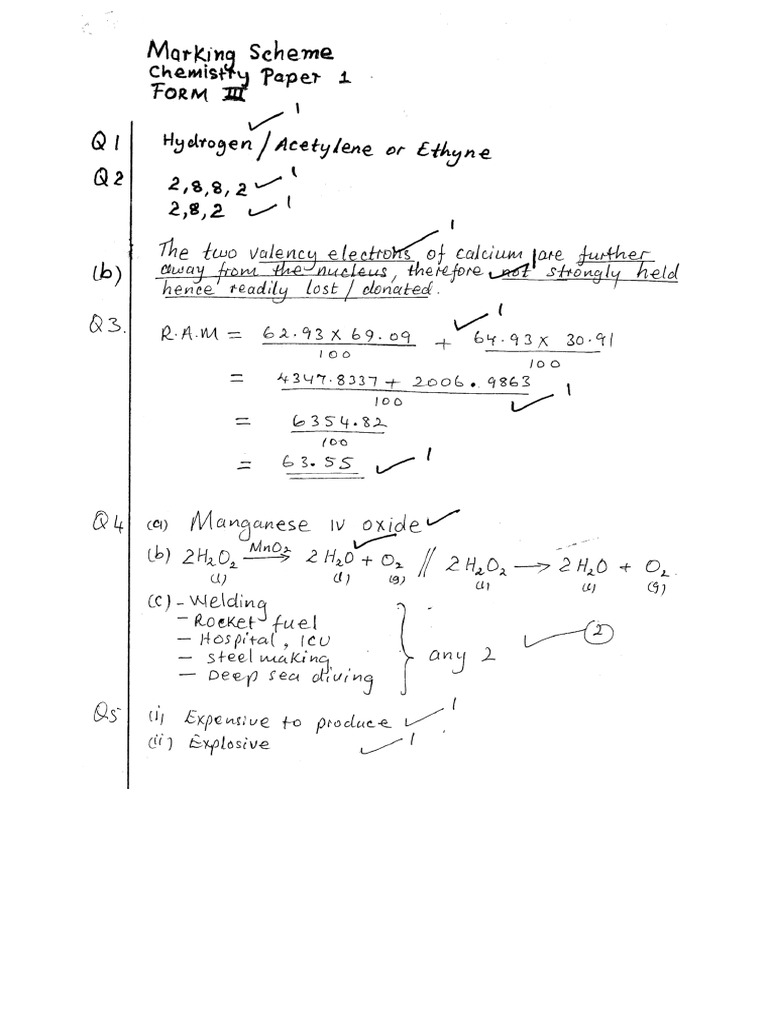 Marking Scheme
Chemistry Paper 1
FORM III
✓ 1
Q1 Hydrogen / Acetylene or Ethyne
Q2 2,8,8,2 ✓ 1
2,8,2 ✓ 1
✓ 1
The two valency electrons of calcium are further
(b) away from the nucleus, therefore not strongly held
hence readily lost / donated.
Q3. R.A.M = 62.93 x 69.09 / 100 + 64.93 x 30.91 / 100 ✓ 1
= 4347.8337 + 2006.9863 / 100 ✓ 1
= 6354.82 / 100
= 63.55 ✓ 1
Q4 (a) Manganese IV oxide ✓
(b) 2H₂O₂ (l) —MnO₂→ 2H₂O (l) + O₂ (g) // 2H₂O₂ (l) → 2H₂O (l) + O₂ (g) ✓
(c) - Welding
- Rocket fuel
- Hospital, ICU
- Steel making } any 2 ✓ 2
- Deep sea diving
Q5 (i) Expensive to produce ✓ 1
(ii) Explosive ✓ 1